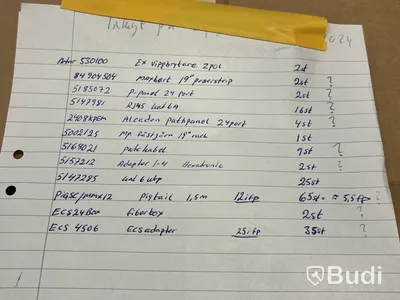 2024
Artnr 530100 Ex vippbrytare 2pol 2st
84904504 Maxbert 19" powerstrip 2st ?
5185072 P-panel 24 port 2st ?
5147981 RJ45 kat6A 16st ?
2408KPEM Alcadon Pathpanel 24port 4st ?
5002125 19" rack 1st
5168021 patchkabel 9st ?
5157212 Adapter 1-4 Hexatronic 2st ?
5147285 kat 6 utp 25st
Pigtail 1,5m 12i fp 65st = 5,5fp ?
ECS24Box fiberbox 2st ?
ECS 4506 ECSadapter 25i fp 35st ?
Budi